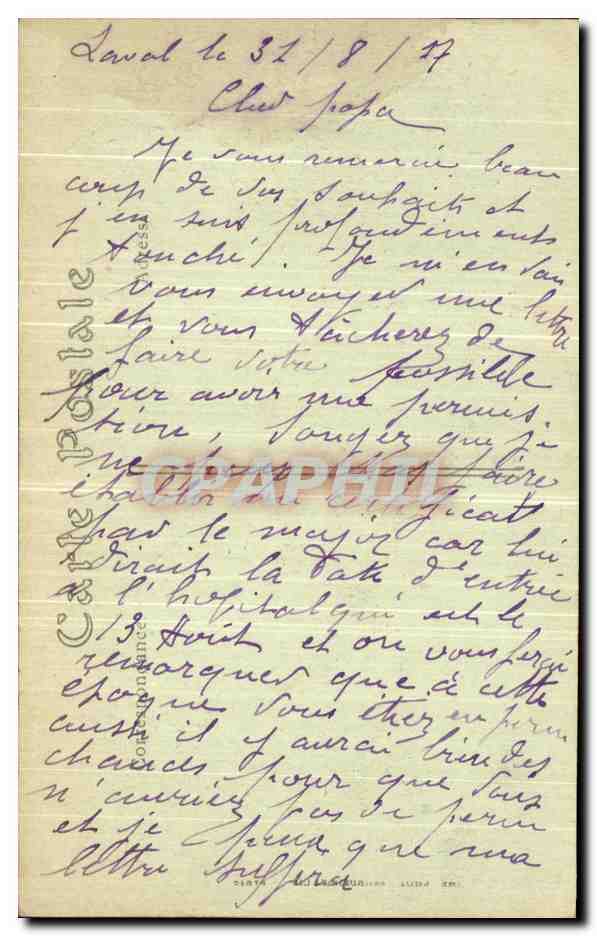 Laval le 31/8/17
Cher papa
Je vous remercie beau
coup de vos souhaits et
j'en suis profondements
touché. Je m'en vais
vous envoyer une lettre
et vous tâcherez de
faire votre possible
pour avoir une permis
sion, songez que je
ne faire
établir un certificat
par le major car lui
dirait la date d'entrée
à l'hopital qui est le
13 Août et on vous ferai
remarquer que à cette
époque vous étiez en perm
aussi il y aurai bien des
chances pour que vous
n'auriez pas de perm
et je pense que ma
lettre suffira
Carte Postale
Correspondance
Adresse
CPAPHIL